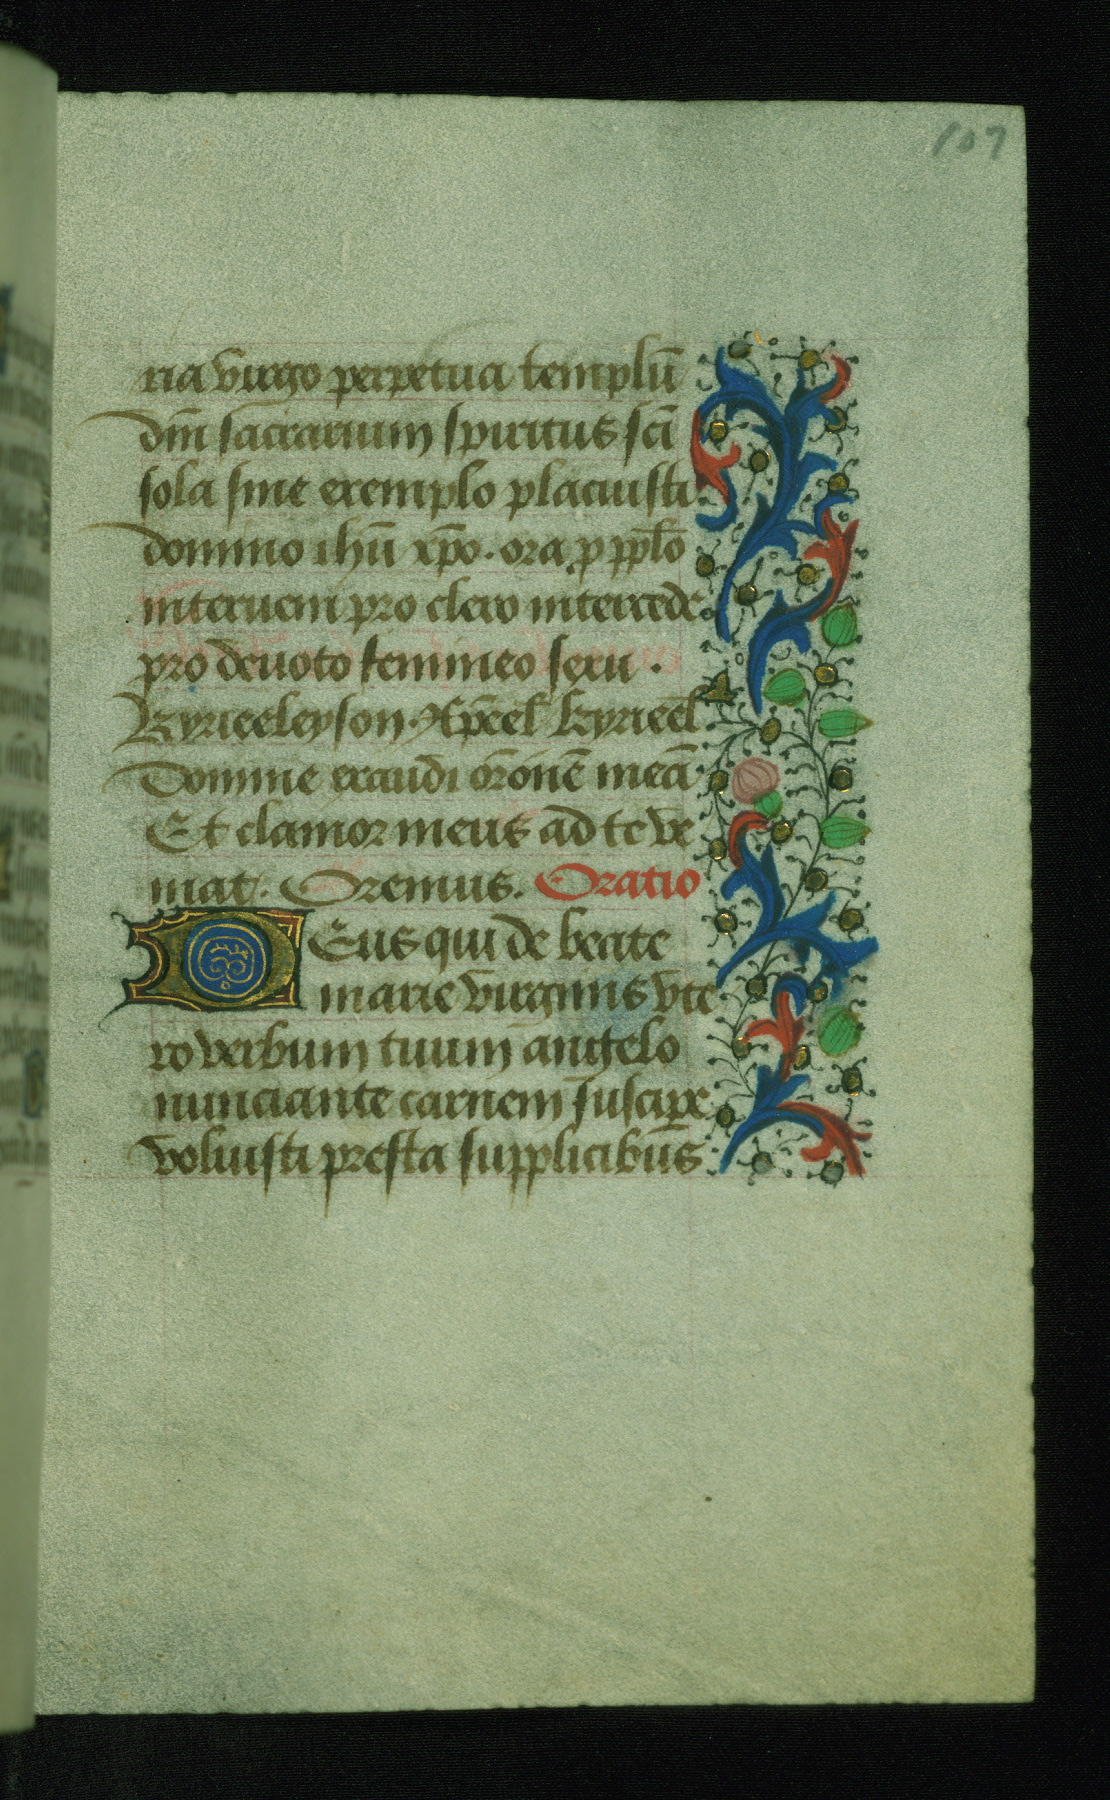 107
ria virgo perpetua templū
dm̄ sacrarium spiritus scī
sola sine exemplo placuisti
domino ihū xp̄o. ora p pp̄lo
interueni pro clero intercede
pro deuoto femineo sexu .
Kyrieeleyson. Xp̄eel̄ kyrieel̄
Domine exaudi or̄onē meā.
Et clamor meus ad te ve
niat. Oremus. Oratio
Deus qui de beate
marie virginis vte
ro verbum tuum angelo
nunciante carnem suscipe
voluisti presta supplicibus